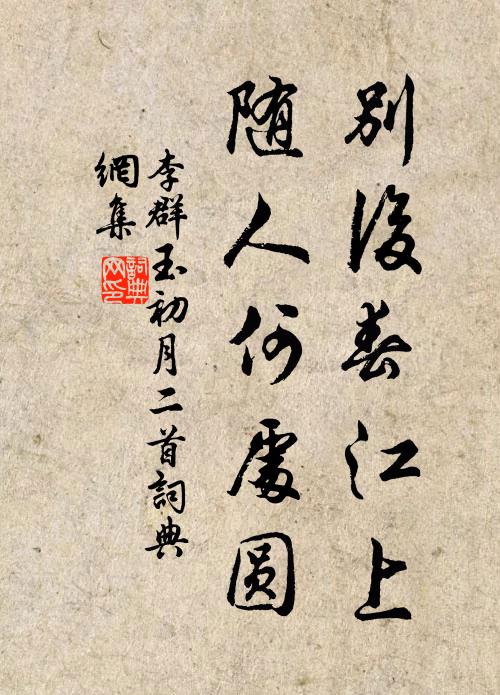 别後春江上
随人何處圆
李群玉初月二首詞典
網集
詞典網印